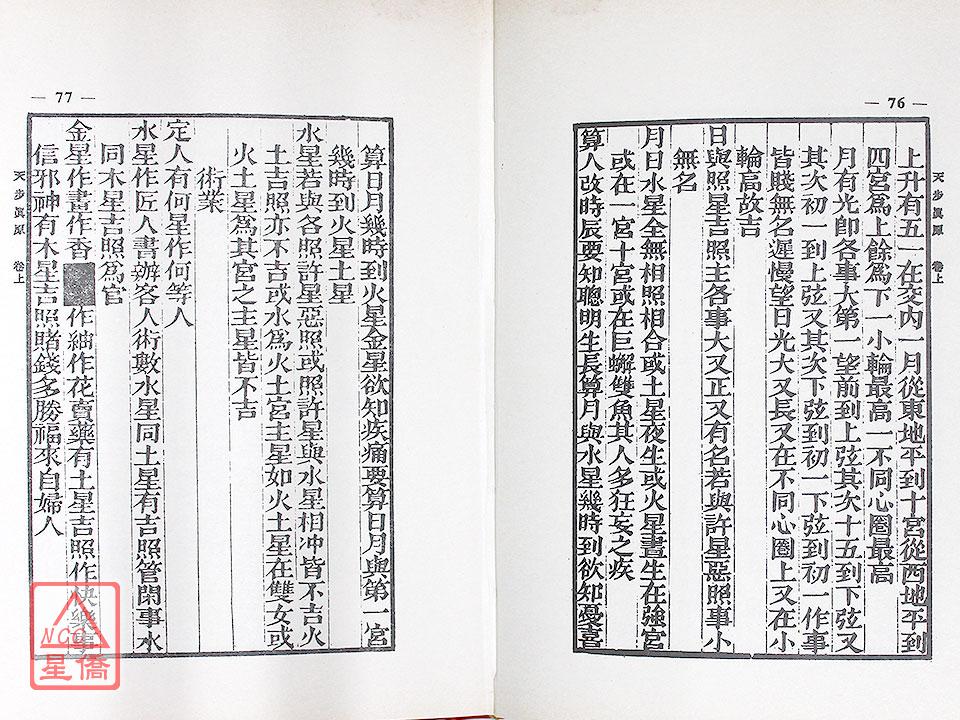 — 76 —
天步眞原 卷上
上升有五一在交內一月從東地平到十宮從西地平到
四宮爲上餘爲下一小輪最高一不同心圈最高
月有光卽各事大第一望前到上弦其次十五到下弦又
其次初一到上弦又其次下弦到初一下弦到初一作事
皆賤無名遲慢望日光大又長又在不同心圈上又在小
輪高故吉
日與照星吉照主各事大又正又有名若與許星惡照事小
無名
月日水星全無相照相合或土星夜生或火星晝生在強宮
或在一宮十宮或在巨蠏雙魚其人多狂妄之疾
算人改時辰要知聰明生長算月與水星幾時到欲知憂喜
— 77 —
算日月幾時到火星金星欲知疾痛要算日月與第一宮
幾時到火星土星
水星若與各照許星惡照或照許星與水星相冲皆不吉火
土吉照亦不吉或水爲火土宮主星如火土星在雙女或
火土星爲其宮之主星皆不吉
術業
定人有何星作何等人
水星作匠人書辦客人術數水星同土星有吉照管閑事水
同木星吉照爲官
金星作畫作香 作紬作花賣藥有土星吉照作快樂事
信邪神有木星吉照賭錢多勝福來自婦人
天步眞原 卷上
NCC
星僑